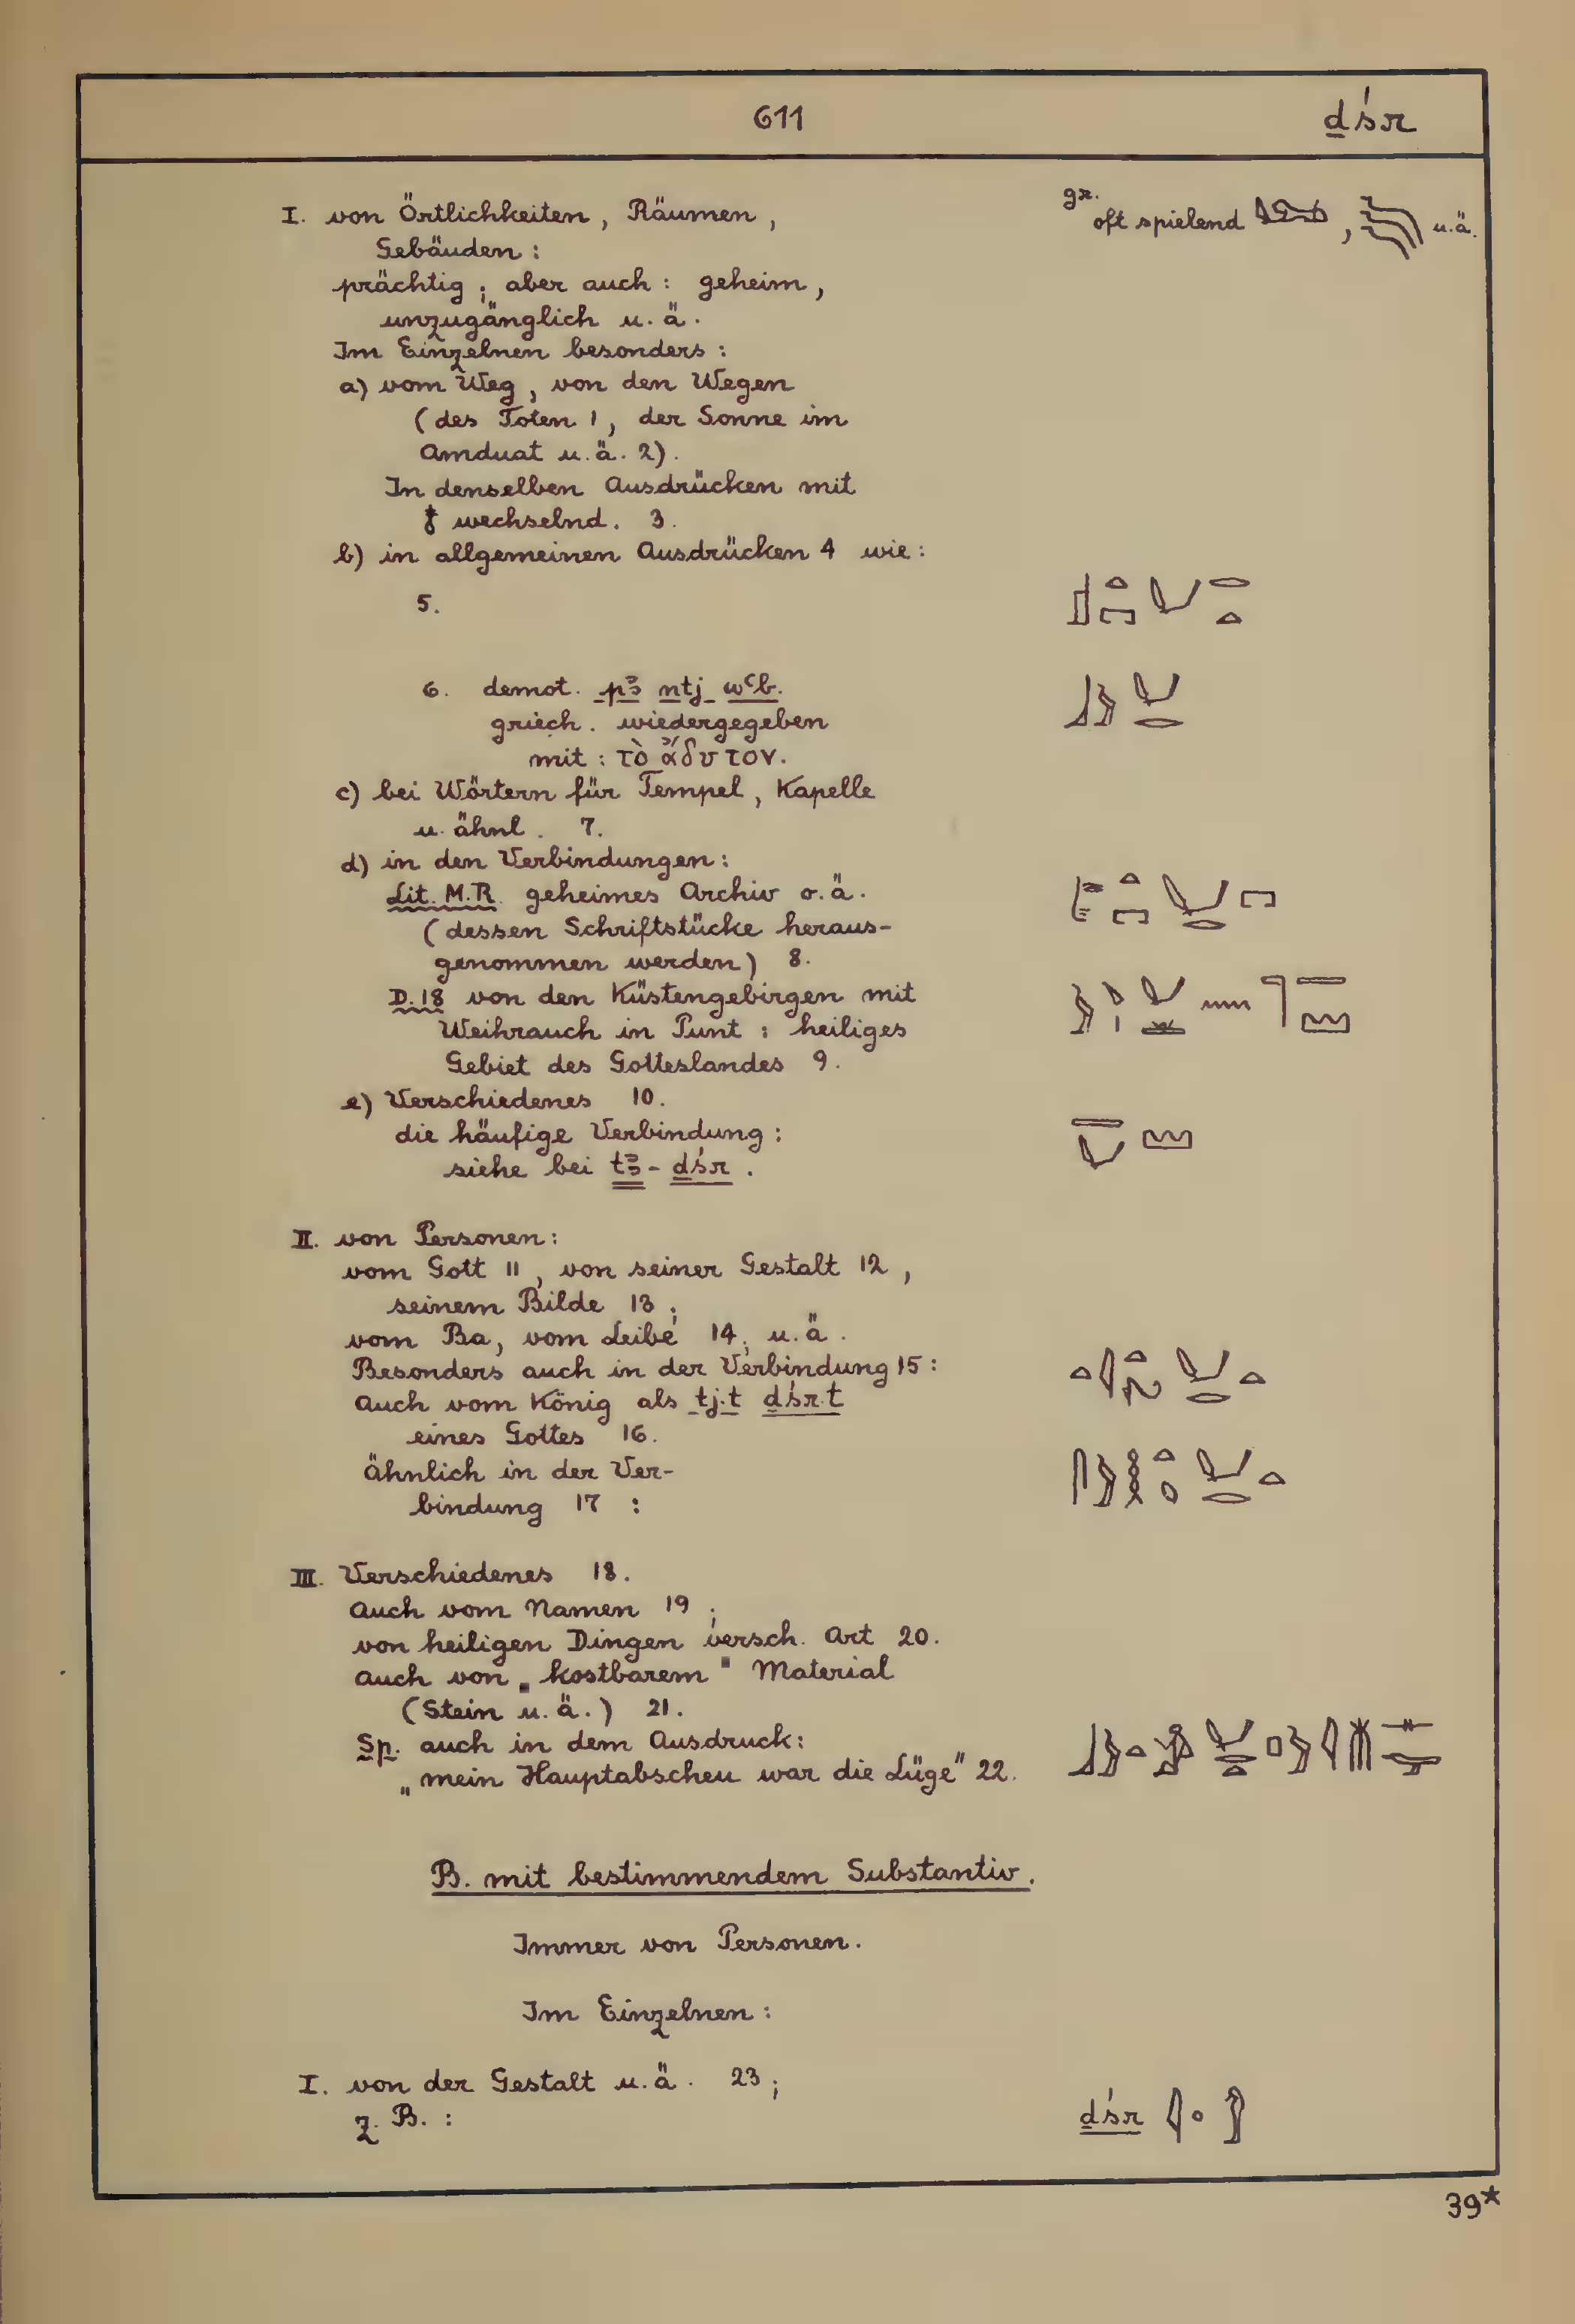 611 ḏśr
gr. oft spielend , u.ä.
I. von Örtlichkeiten, Räumen,
Gebäuden:
prächtig; aber auch: geheim,
unzugänglich u. ä.
Im Einzelnen besonders:
a) vom Weg, von den Wegen
(des Toten 1, der Sonne im
Amduat u. ä. 2).
In denselben Ausdrücken mit
wechselnd. 3.
b) in allgemeinen Ausdrücken 4 wie:
5.
6. demot. pꜣ ntj wꜥb.
griech. wiedergegeben
mit: τὸ ἄδυτον.
c) bei Wörtern für Tempel, Kapelle
u. ähnl. 7.
d) in den Verbindungen:
Lit. M.R. geheimes Archiv o. ä.
(dessen Schriftstücke heraus-
genommen werden) 8.
D. 18 von den Küstengebirgen mit
Weihrauch in Punt: heiliges
Gebiet des Gotteslandes 9.
e) Verschiedenes 10.
die häufige Verbindung:
siehe bei tꜣ-ḏśr.
II. von Personen:
vom Gott 11, von seiner Gestalt 12,
seinem Bilde 13;
vom Ba, vom Leibe 14, u. ä.
Besonders auch in der Verbindung 15:
Auch vom König als tj.t ḏśr.t
eines Gottes 16.
ähnlich in der Ver-
bindung 17:
III. Verschiedenes 18.
Auch vom Namen 19;
von heiligen Dingen versch. Art 20.
Auch von „kostbarem" Material
(Stein u. ä.) 21.
Sp. auch in dem Ausdruck:
„mein Hauptabscheu war die Lüge" 22.
B. mit bestimmendem Substantiv.
Immer von Personen.
Im Einzelnen:
I. von der Gestalt u. ä. 23;
z. B.: ḏśr
39*